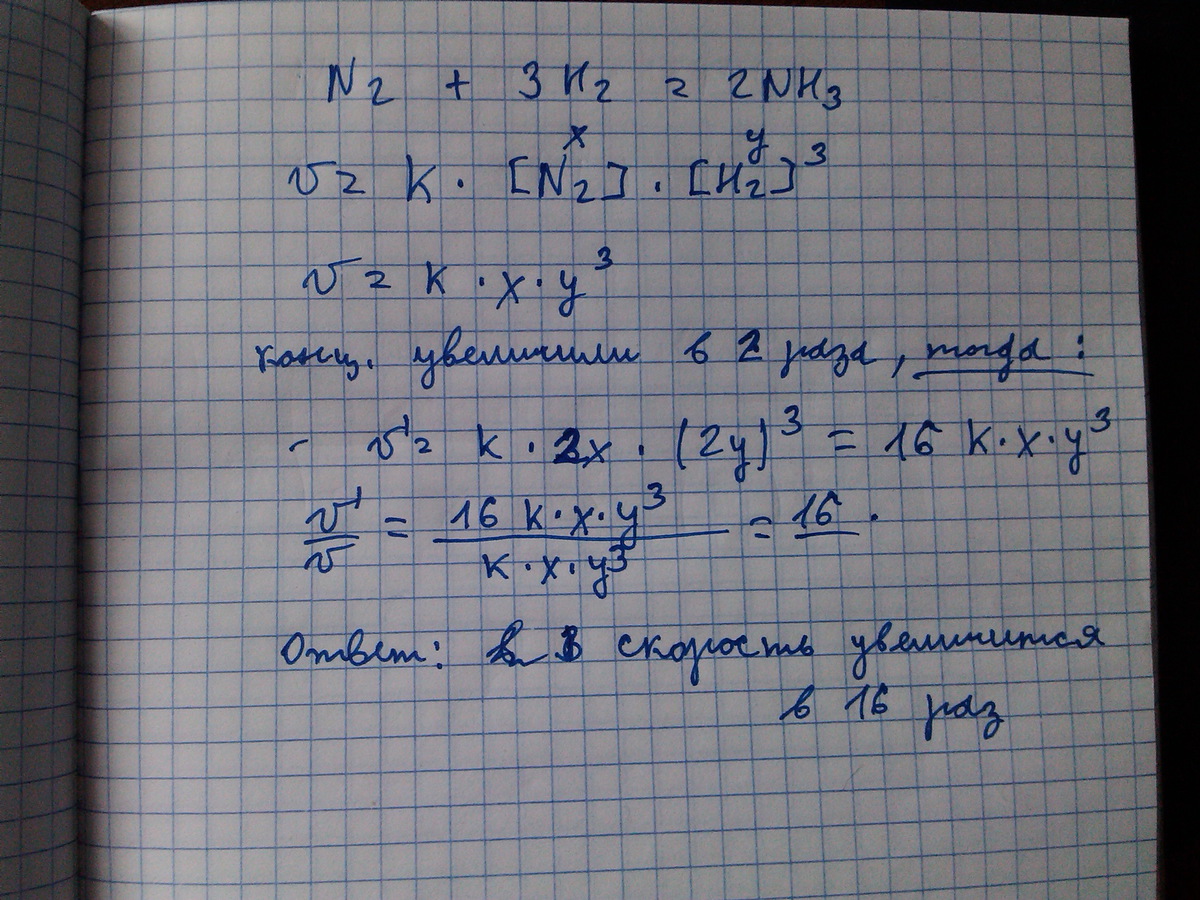 N₂ + 3H₂ = 2NH₃
x y
v = k · [N₂] · [H₂]³
v = k · x · y³
конц. увеличили в 2 раза, тогда:
- v' = k · 2x · (2y)³ = 16 k·x·y³
v'/v = 16 k·x·y³ / k·x·y³ = 16.
Ответ: скорость увеличится
в 16 раз